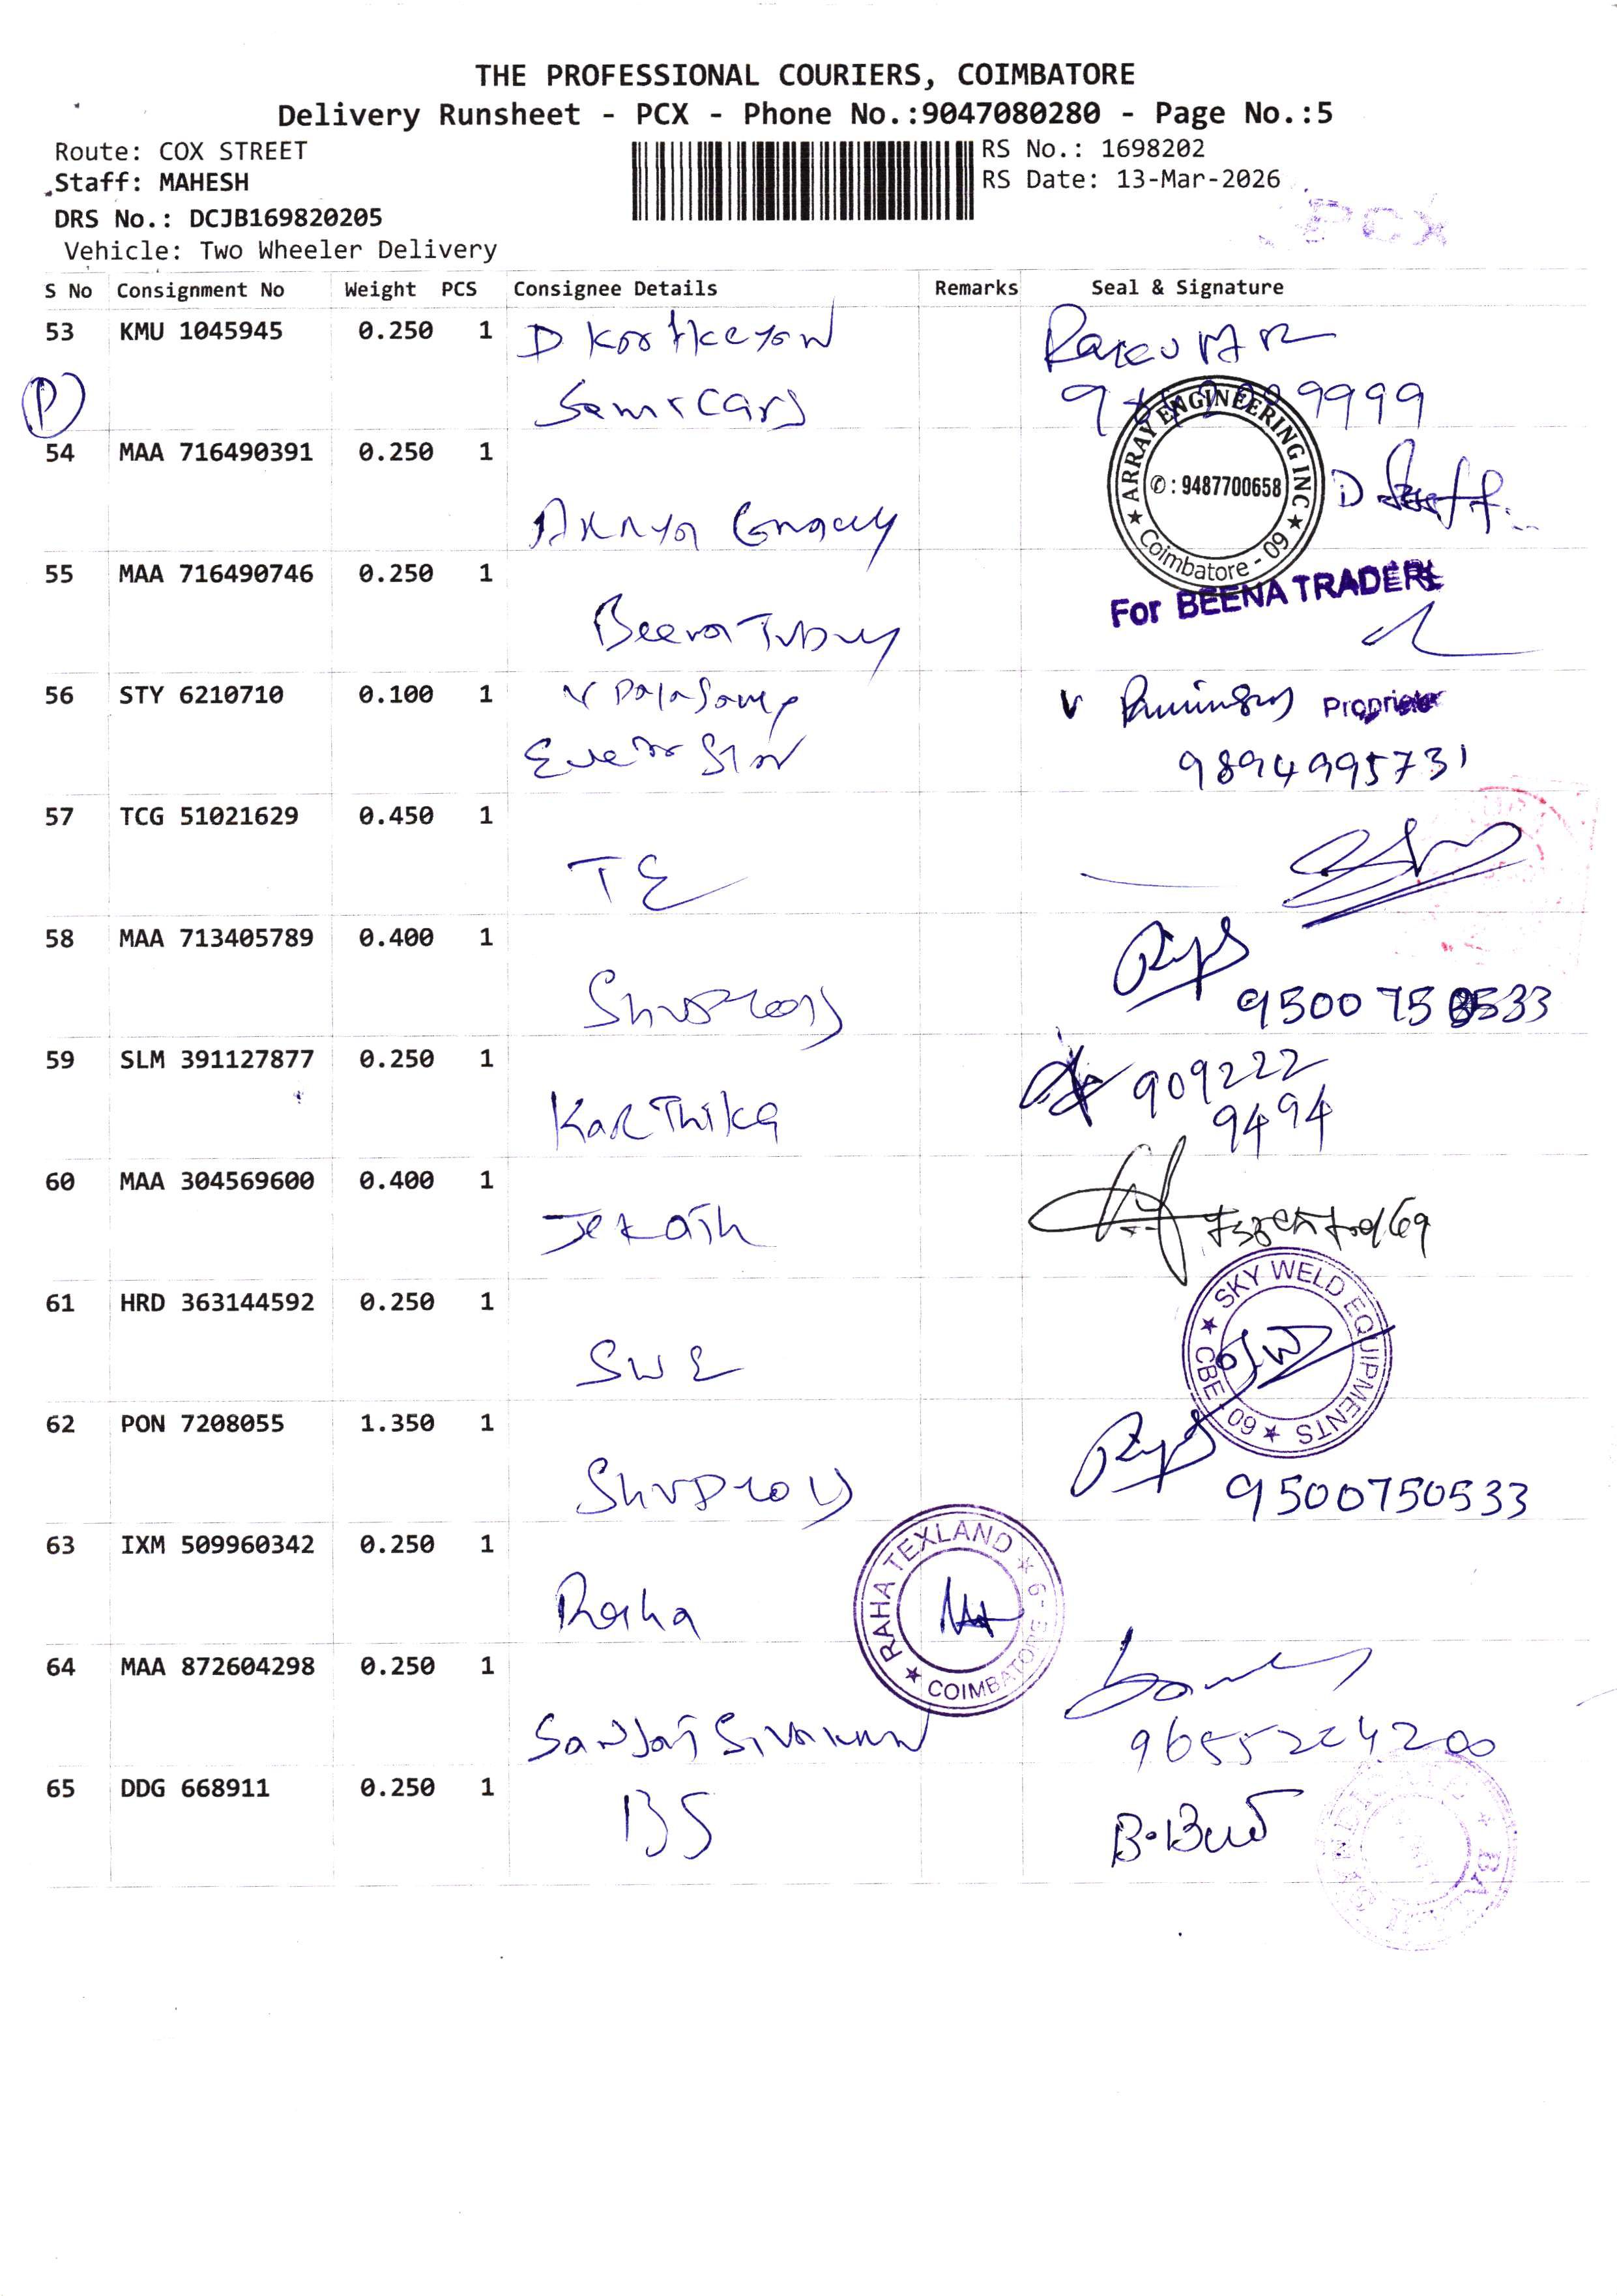 THE PROFESSIONAL COURIERS, COIMBATORE
Delivery Runsheet - PCX - Phone No.:9047080280 - Page No.:5
Route: COX STREET
RS No.: 1698202
Staff: MAHESH
RS Date: 13-Mar-2026
PCX
DRS No.: DCJB169820205
Vehicle: Two Wheeler Delivery
S No Consignment No Weight PCS Consignee Details Remarks Seal & Signature
53 KMU 1045945 0.250 1 D
P
9999
54 MAA 716490391 0.250 1
ARRAY ENGINEERING INC
✆ : 9487700658
Coimbatore - 09
D
55 MAA 716490746 0.250 1
For BEENA TRADERS
Beena
56 STY 6210710 0.100 1 V
V Proprietor
9894995731
57 TCG 51021629 0.450 1
TE
58 MAA 713405789 0.400 1
9500750533
59 SLM 391127877 0.250 1
909222
9494
Karthika
60 MAA 304569600 0.400 1
61 HRD 363144592 0.250 1
SKY WELD EQUIPMENTS
CBE - 09
SWE
62 PON 7208055 1.350 1
9500750533
63 IXM 509960342 0.250 1
RAHA TEXLAND
COIMBATORE - 9
Raha
64 MAA 872604298 0.250 1
Sanjai
9655224200
65 DDG 668911 0.250 1
BS